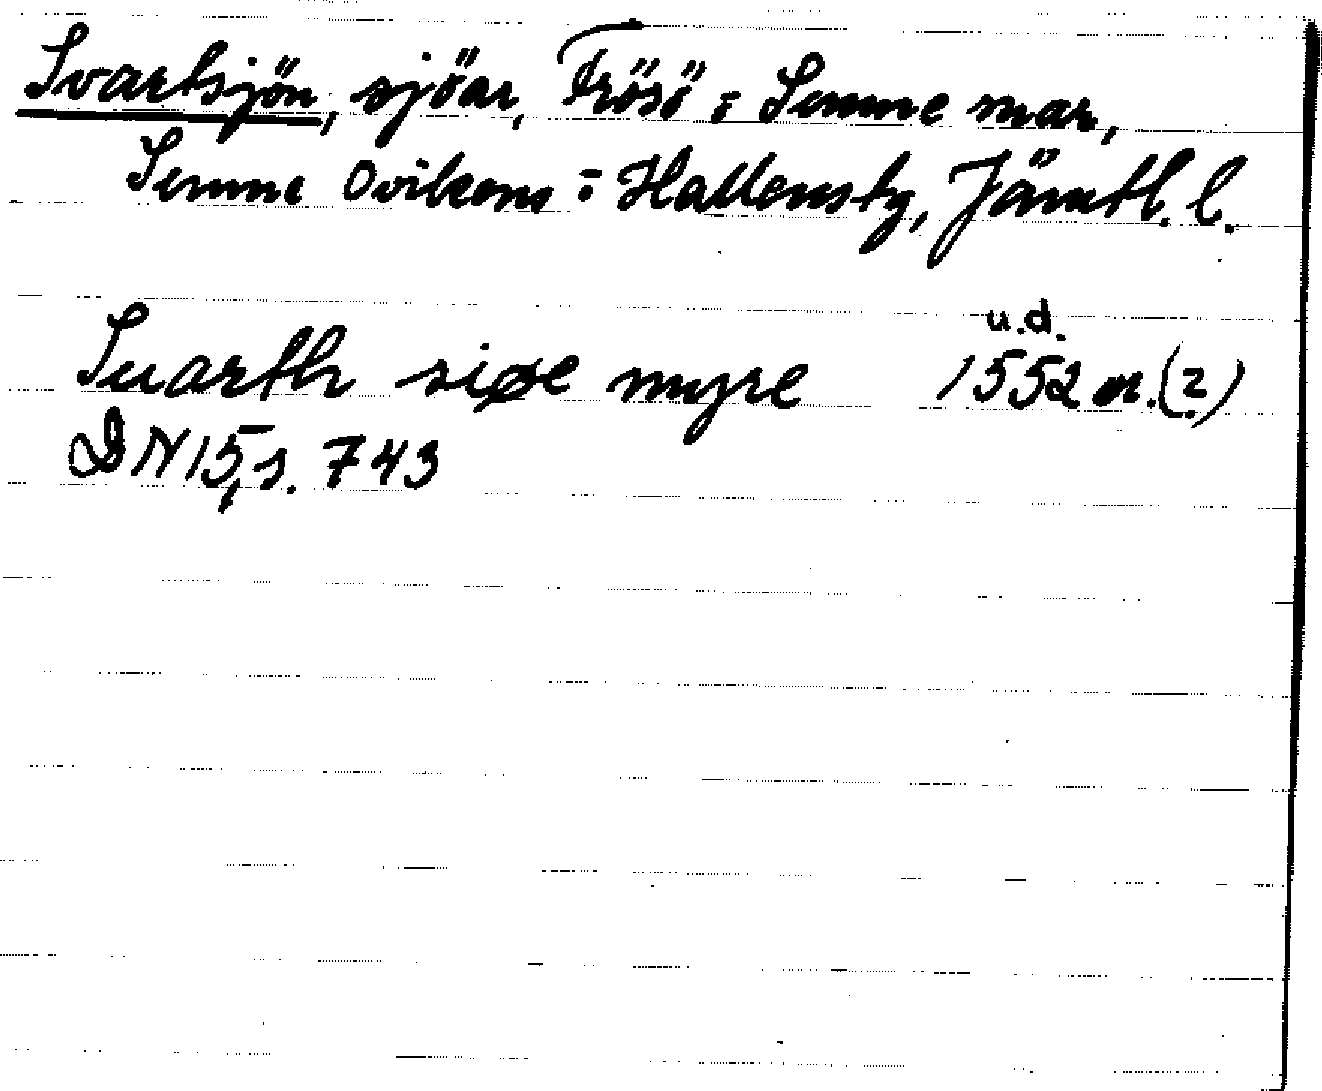 Svartsjön, sjöar, Frösö: Sunne mar,
Sunne Ovikens: Hallensty, Jämtl. l.
u.d.
Suarth siøse myre 1552 or.(?)
DN 15, s. 743